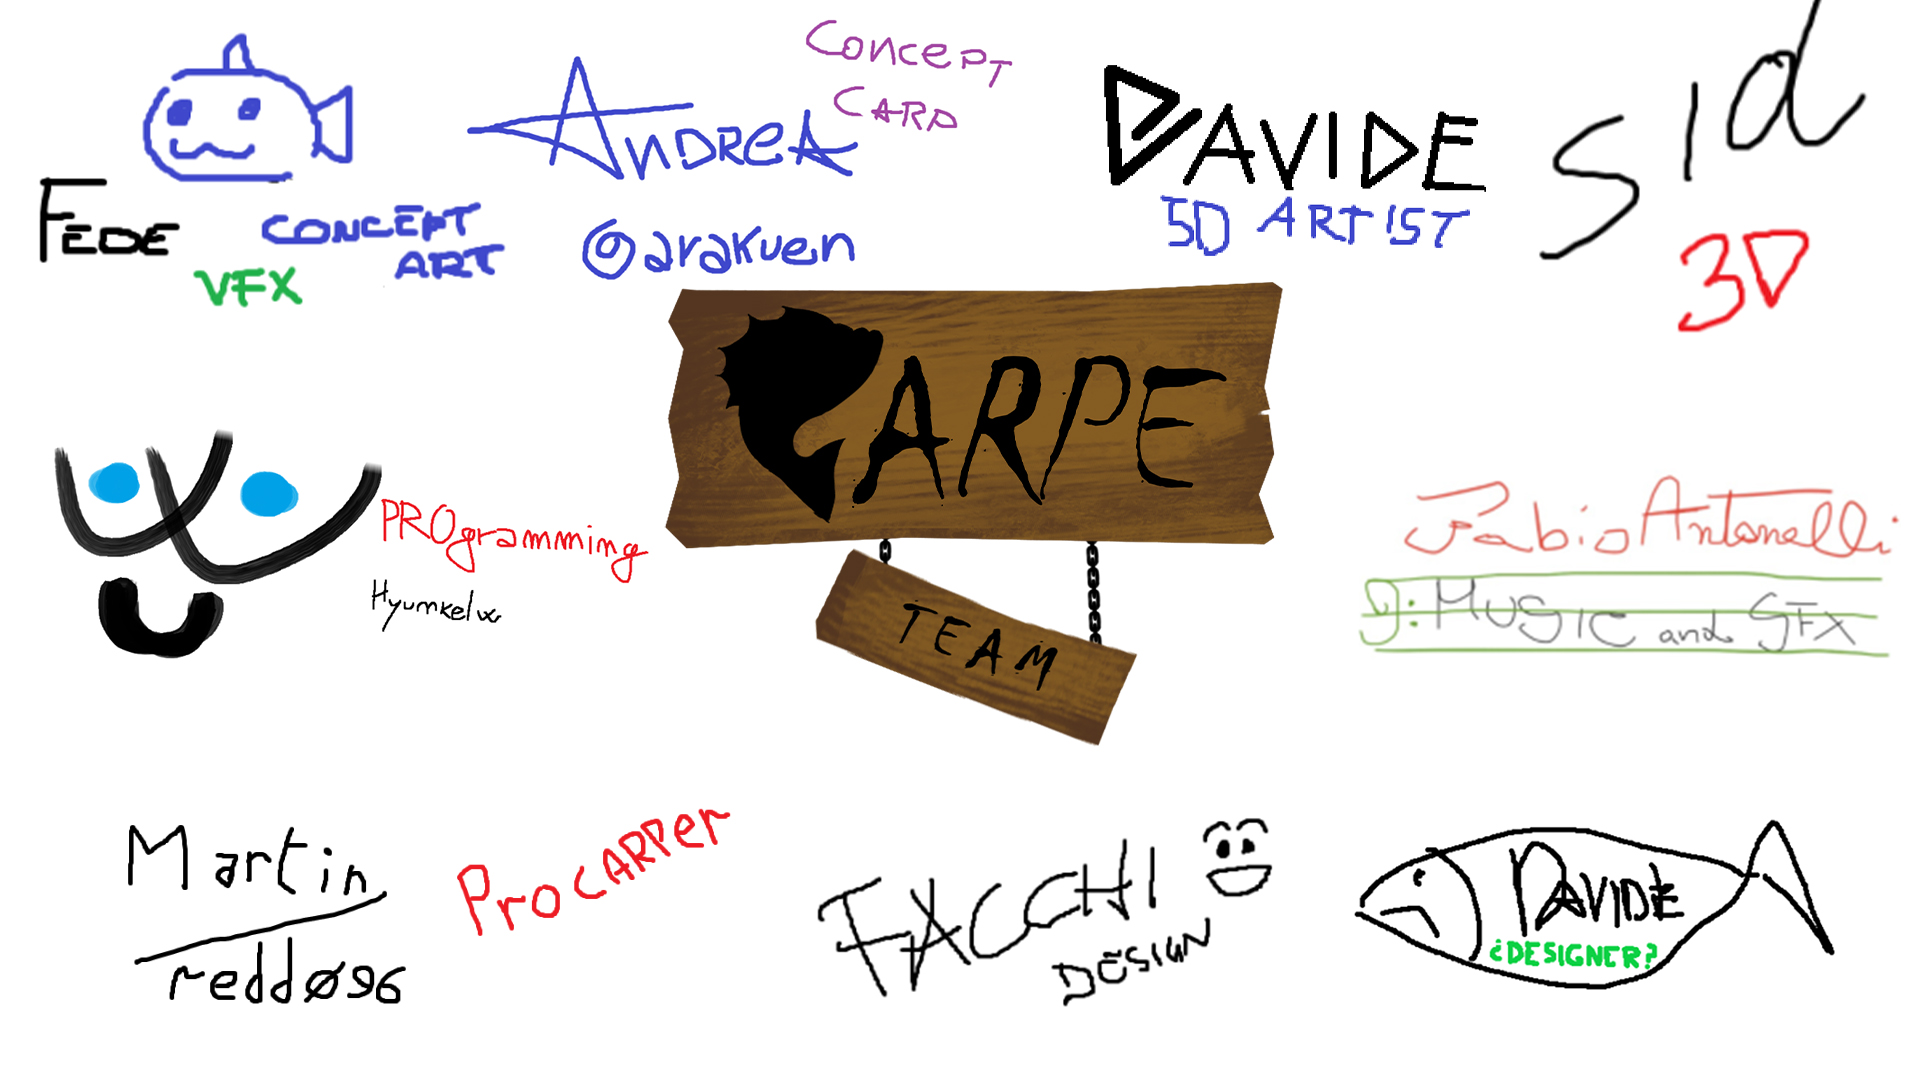 FEDE
CONCEPT
ART
VFX
ANDREA
CONCEPT
CARP
@arakuen
DAVIDE
5D ARTIST
Sid
3D
CARPE
TEAM
PROgramming
Fabio Antonelli
: MUSIC and SFX
Martin
reddø96
ProCARPer
FACCHI
DESIGN
DAVIDE
¿DESIGNER?